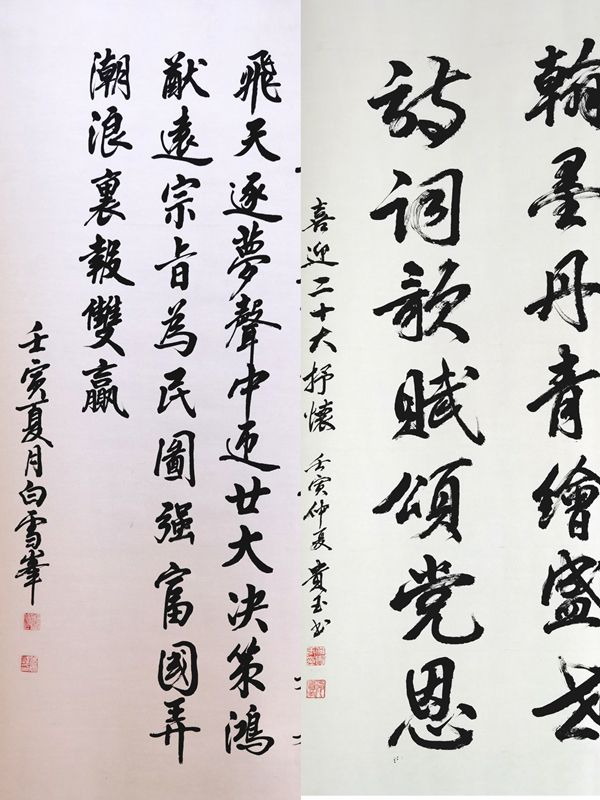 飛天逐夢聲中迎廿大决策鴻
猷遠宗旨為民圖强富國弄
潮浪裏報雙贏
壬寅夏月白雪峯
翰墨丹青繪盛世
詩詞歌賦頌党恩
喜迎二十大抒懷 壬寅仲夏 貴玉书